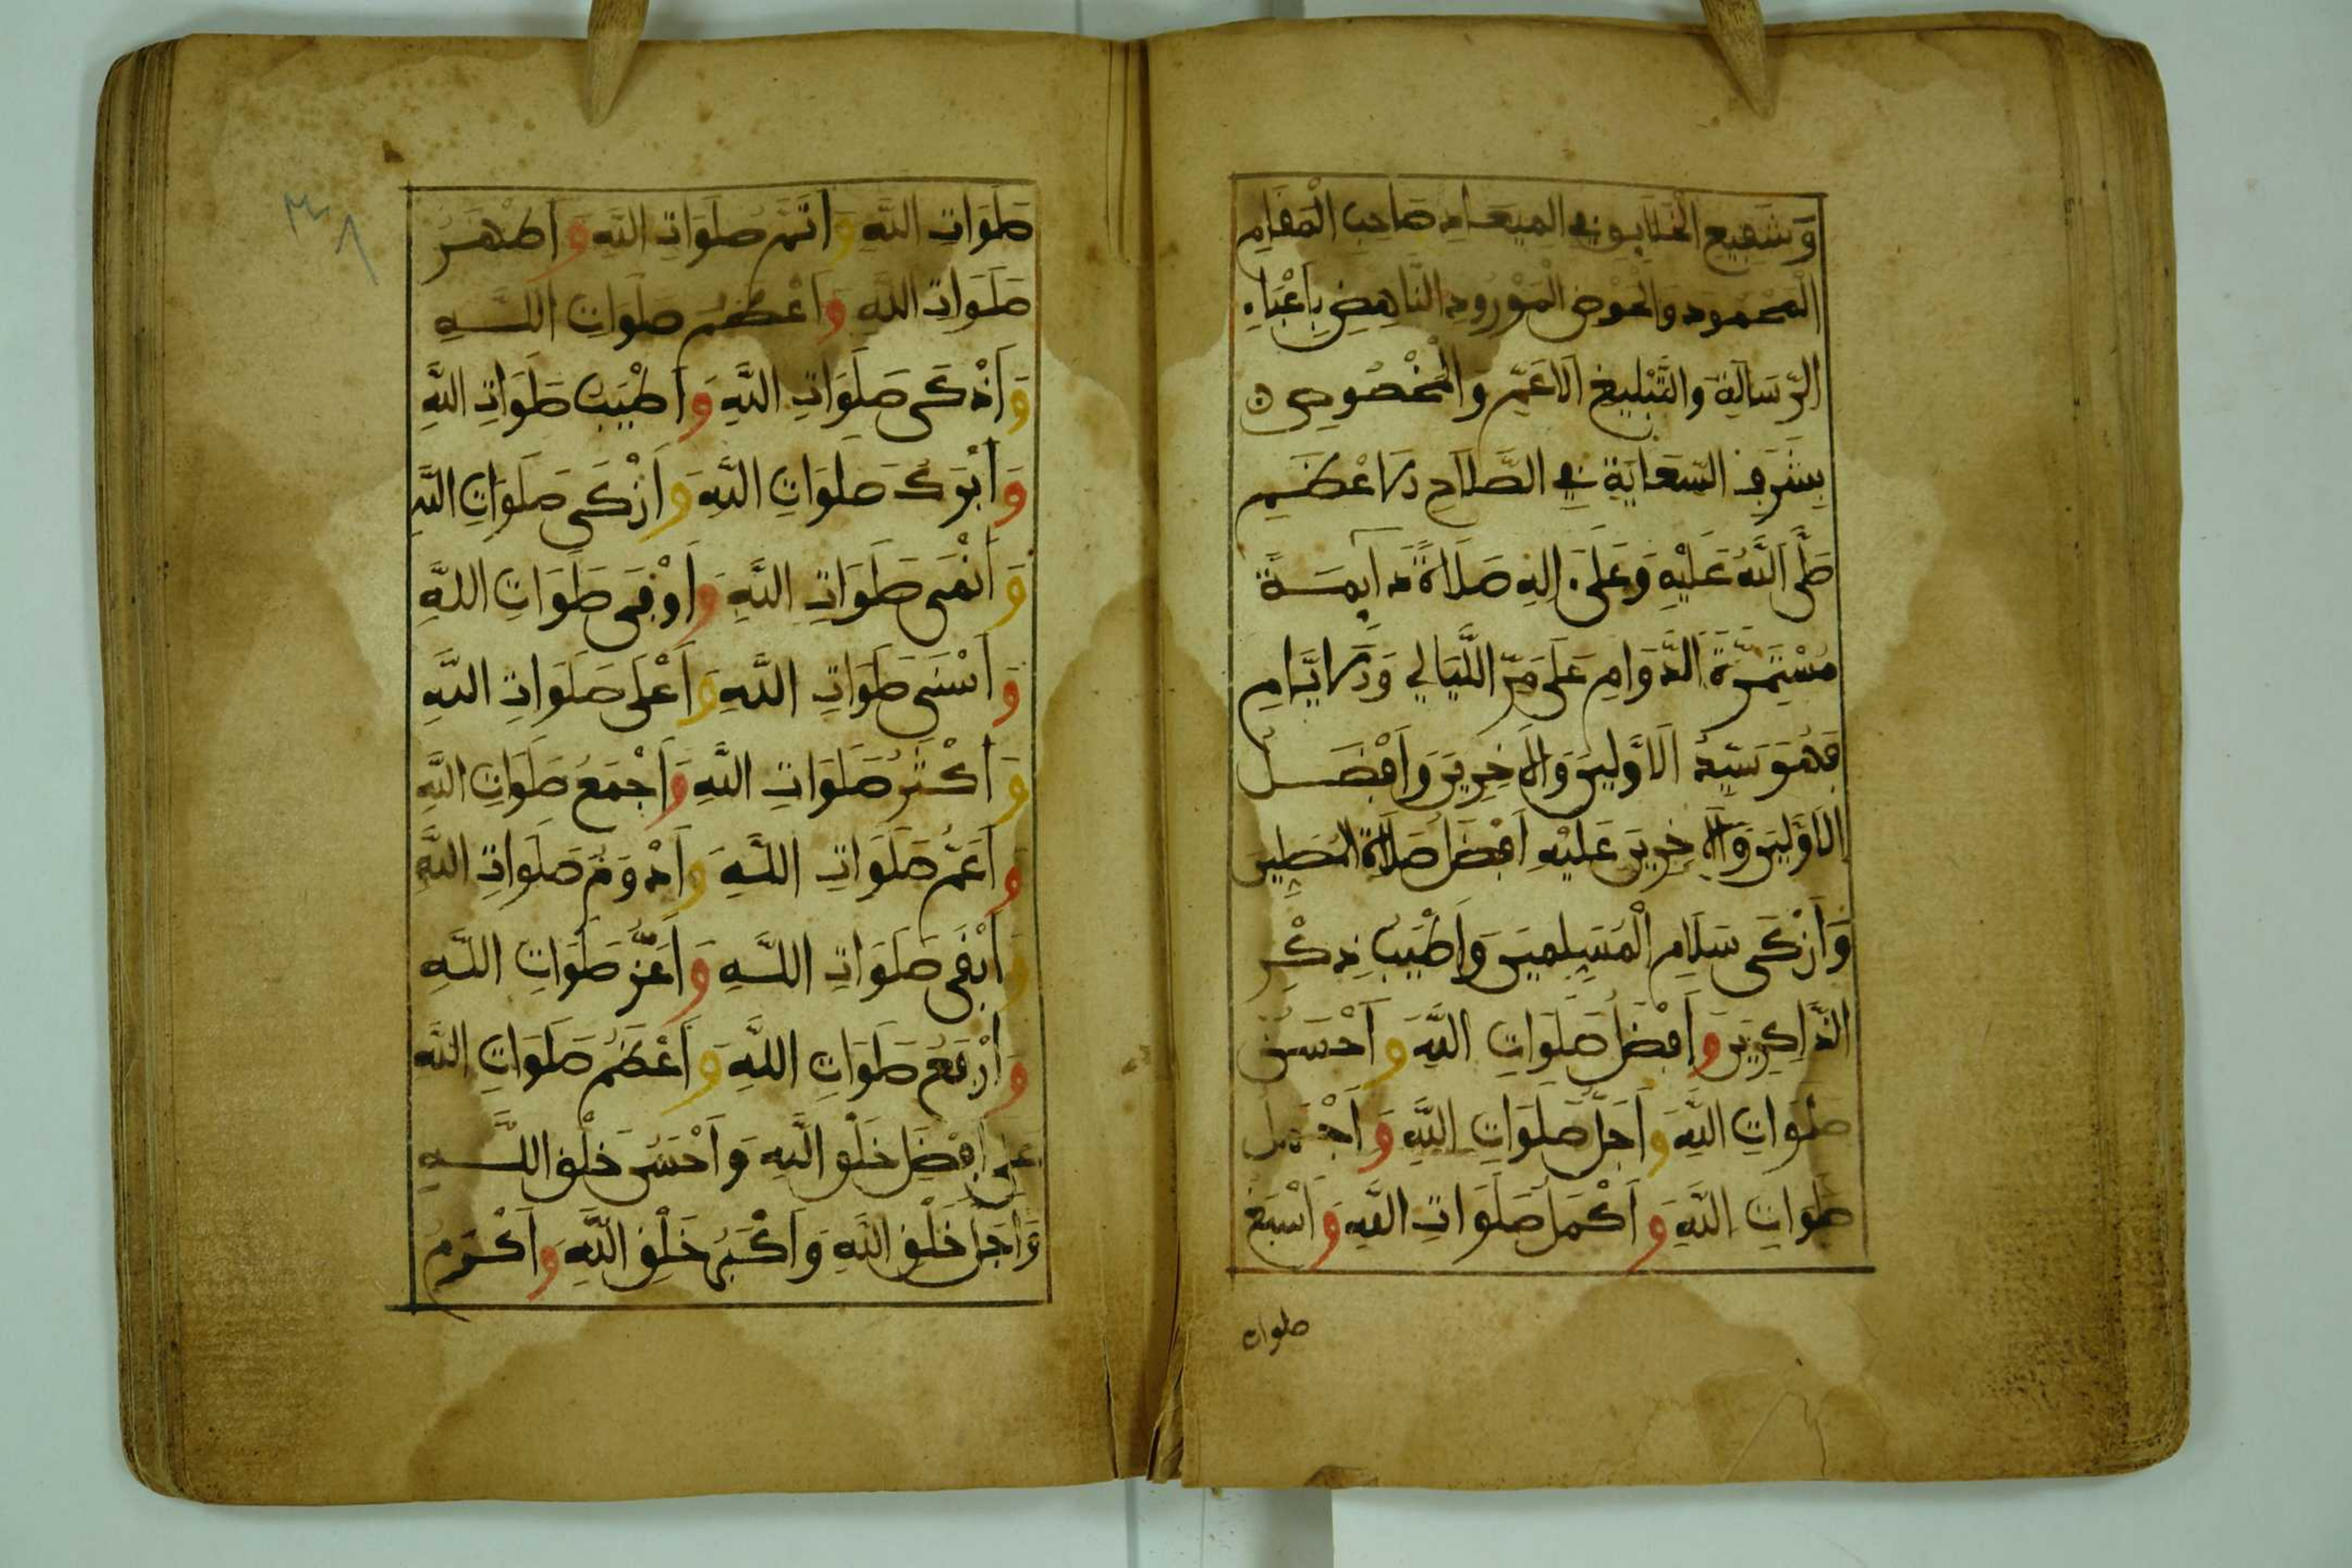 وَشَفِيعِ الْخَلَايِقِ فِي الْمِيعَادِ صَاحِبِ الْمَقَامِ
الْمَحْمُودِ وَالْحَوْضِ الْمَوْرُودِ النَّاهِضِ بِأَعْبَاءِ
الرِّسَالَةِ وَالتَّبْلِيغِ الْأَعَمِّ وَالْمَخْصُوصِ
بِشَرَفِ السِّعَايَةِ فِي الصَّلَاحِ الْأَعْظَمِ
صَلَّى اللَّهُ عَلَيْهِ وَعَلَى ءَالِهِ صَلَاةً دَآيِمَةً
مُسْتَمِرَّةَ الدَّوَامِ عَلَى مَرِّ اللَّيَالِي وَالْأَيَّامِ
فَهُوَ سَيِّدُ الْأَوَّلِينَ وَالْآخِرِينَ وَأَفْضَلُ
الْأَوَّلِينَ وَالْآخِرِينَ عَلَيْهِ أَفْضَلُ صَلَاةِ الْمُصَلِّينَ
وَأَزْكَى سَلَامِ الْمُسَلِّمِينَ وَأَطْيَبُ ذِكْرِ
الذَّاكِرِينَ وَأَفْضَلُ صَلَوَاتِ اللَّهِ وَأَحْسَنُ
صَلَوَاتِ اللَّهِ وَأَجَلُّ صَلَوَاتِ اللَّهِ وَأَجْمَلُ
صَلَوَاتِ اللَّهِ وَأَكْمَلُ صَلَوَاتِ اللَّهِ وَأَسْبَغُ
صلوات
٣٨
صَلَوَاتِ اللَّهِ وَأَتَمُّ صَلَوَاتِ اللَّهِ وَأَظْهَرُ
صَلَوَاتِ اللَّهِ وَأَعْظَمُ صَلَوَاتِ اللَّهِ
وَأَذْكَى صَلَوَاتِ اللَّهِ وَأَطْيَبُ صَلَوَاتِ اللَّهِ
وَأَبْرَكُ صَلَوَاتِ اللَّهِ وَأَزْكَى صَلَوَاتِ اللَّهِ
وَأَنْمَى صَلَوَاتِ اللَّهِ وَأَوْفَى صَلَوَاتِ اللَّهِ
وَأَسْنَى صَلَوَاتِ اللَّهِ وَأَعْلَى صَلَوَاتِ اللَّهِ
وَأَكْثَرُ صَلَوَاتِ اللَّهِ وَأَجْمَعُ صَلَوَاتِ اللَّهِ
وَأَعَمُّ صَلَوَاتِ اللَّهِ وَأَدْوَمُ صَلَوَاتِ اللَّهِ
وَأَبْقَى صَلَوَاتِ اللَّهِ وَأَعَزُّ صَلَوَاتِ اللَّهِ
وَأَرْفَعُ صَلَوَاتِ اللَّهِ وَأَعْظَمُ صَلَوَاتِ اللَّهِ
عَلَى أَفْضَلِ خَلْقِ اللَّهِ وَأَحْسَنِ خَلْقِ اللَّهِ
وَأَجَلِّ خَلْقِ اللَّهِ وَأَكْبَرِ خَلْقِ اللَّهِ وَأَكْرَمِ